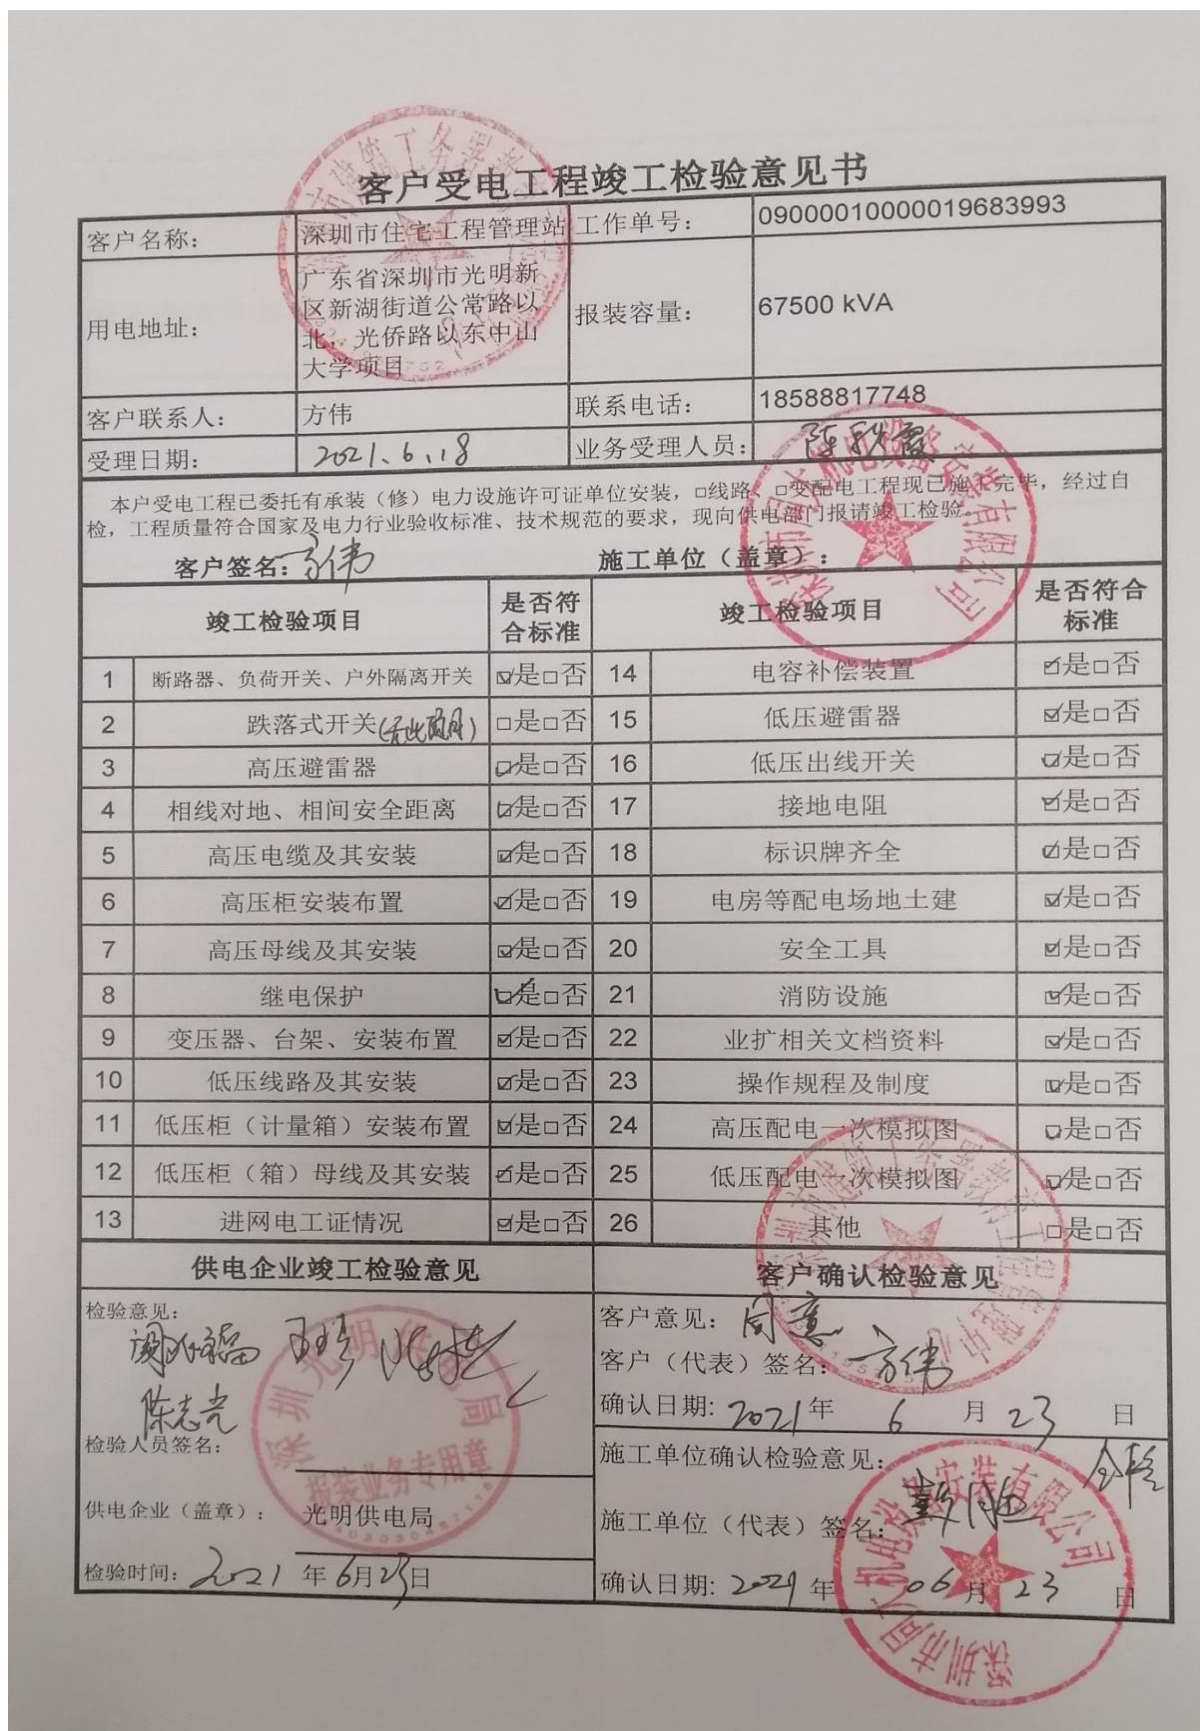 客户受电工程竣工检验意见书
客户名称: 深圳市住宅工程管理站 工作单号: 09000010000019683993
用电地址: 广东省深圳市光明新区新湖街道公常路以北,光侨路以东中山大学项目 报装容量: 67500 kVA
客户联系人: 方伟 联系电话: 18588817748
受理日期: 2021.6.18 业务受理人员:
本户受电工程已委托有承装(修)电力设施许可证单位安装,□线路、□变配电工程现已施工完毕,经过自
检,工程质量符合国家及电力行业验收标准、技术规范的要求,现向供电部门报请竣工检验。
客户签名: 方伟 施工单位(盖章):
竣工检验项目 是否符合标准 竣工检验项目 是否符合标准
1 断路器、负荷开关、户外隔离开关 ☑是□否 14 电容补偿装置 ☑是□否
2 跌落式开关(无此项目) □是□否 15 低压避雷器 ☑是□否
3 高压避雷器 ☑是□否 16 低压出线开关 ☑是□否
4 相线对地、相间安全距离 ☑是□否 17 接地电阻 ☑是□否
5 高压电缆及其安装 ☑是□否 18 标识牌齐全 ☑是□否
6 高压柜安装布置 ☑是□否 19 电房等配电场地土建 ☑是□否
7 高压母线及其安装 ☑是□否 20 安全工具 ☑是□否
8 继电保护 ☑是□否 21 消防设施 ☑是□否
9 变压器、台架、安装布置 ☑是□否 22 业扩相关文档资料 ☑是□否
10 低压线路及其安装 ☑是□否 23 操作规程及制度 ☑是□否
11 低压柜(计量箱)安装布置 ☑是□否 24 高压配电一次模拟图 ☑是□否
12 低压柜(箱)母线及其安装 ☑是□否 25 低压配电一次模拟图 ☑是□否
13 进网电工证情况 ☑是□否 26 其他 □是□否
供电企业竣工检验意见 客户确认检验意见
检验意见:
陈志光
检验人员签名:
供电企业(盖章): 光明供电局
检验时间: 2021年6月23日
客户意见: 同意
客户(代表)签名: 方伟
确认日期: 2021年 6 月 23 日
施工单位确认检验意见: 合格
施工单位(代表)签名:
确认日期: 2021年 06 月 23 日
深圳光明供电局
报装业务专用章